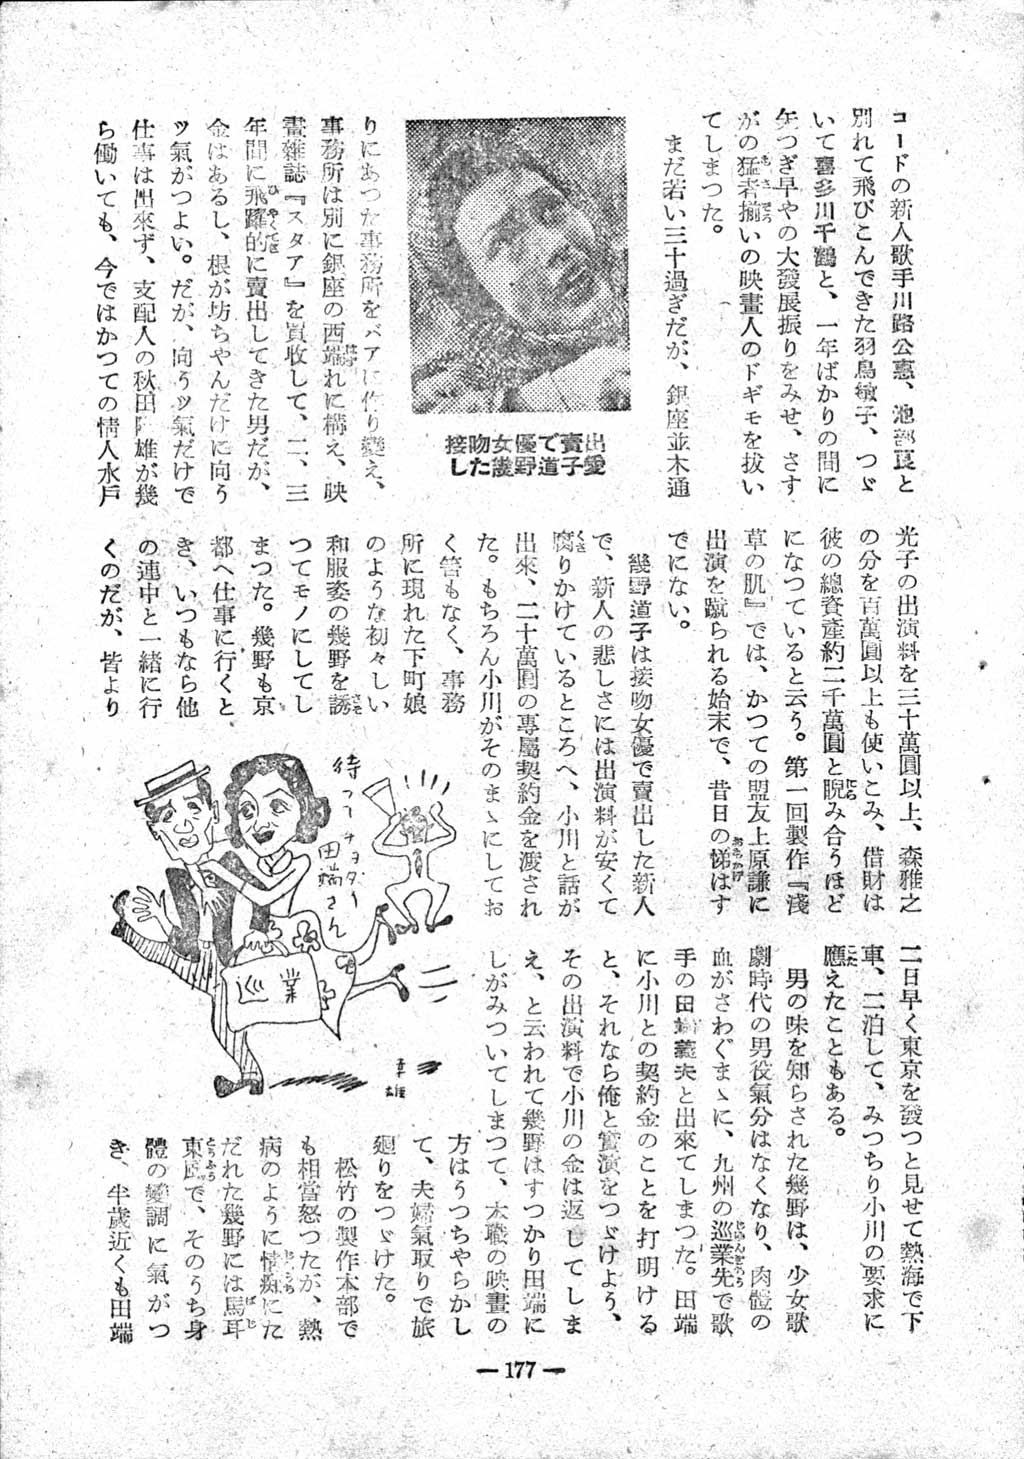 コードの新人歌手川路公惠、池部良と
別れて飛びこんできた羽鳥敏子、つゞ
いて喜多川千鶴と、一年ばかりの間に
矢つぎ早やの大發展振りをみせ、さす
がの猛者揃いの映畫人のドギモを拔い
てしまつた。
まだ若い三十過ぎだが、銀座並木通
りにあつた事務所をバアに作り變え、
事務所は別に銀座の西端れに構え、映
畫雜誌『スタア』を買收して、二、三
年間に飛躍的に賣出してきた男だが、
金はあるし、根が坊ちやんだけに向う
ツ氣がつよい。だが、向うツ氣だけで
仕事は出來ず、支配人の秋田隆雄が幾
ら働いても、今ではかつての情人水戸
接吻女優で賣出
した幾野道子愛
光子の出演料を三十萬圓以上、森雅之
の分を百萬圓以上も使いこみ、借財は
彼の總資產約二千萬圓と睨み合うほど
になつていると云う。第一回製作『淺
草の肌』では、かつての盟友上原謙に
出演を蹴られる始末で、昔日の悌はす
でにない。
幾野道子は接吻女優で賣出した新人
で、新人の悲しさには出演料が安くて
腐りかけているところへ、小川と話が
出來、二十萬圓の專屬契約金を渡され
た。もちろん小川がそのまゝにしてお
く筈もなく、事務
所に現れた下町娘
のような初々しい
和服姿の幾野を誘
つてモノにしてし
まつた。幾野も京
都へ仕事に行くと
き、いつもなら他
の連中と一緒に行
くのだが、皆より
待ってチョダー
田端さん
巡業
幸雄
一日早く東京を發つと見せて熱海で下
車、二泊して、みつちり小川の要求に
應えたこともある。
男の味を知らされた幾野は、少女歌
劇時代の男役氣分はなくなり、肉體の
血がさわぐまゝに、九州の巡業先で歌
手の田端義夫と出來てしまつた。田端
に小川との契約金のことを打明ける
と、それなら俺と實演をつゞけよう、
その出演料で小川の金は返してしま
え、と云われて幾野はすつかり田端に
しがみついてしまつて、本職の映畫の
方はうつちやらかし
て、夫婦氣取りで旅
廻りをつゞけた。
松竹の製作本部で
も相當怒つたが、熱
病のように情痴にた
だれた幾野には馬耳
東風で、そのうち身
體の變調に氣がつ
き、半歲近くも田端
— 177 —